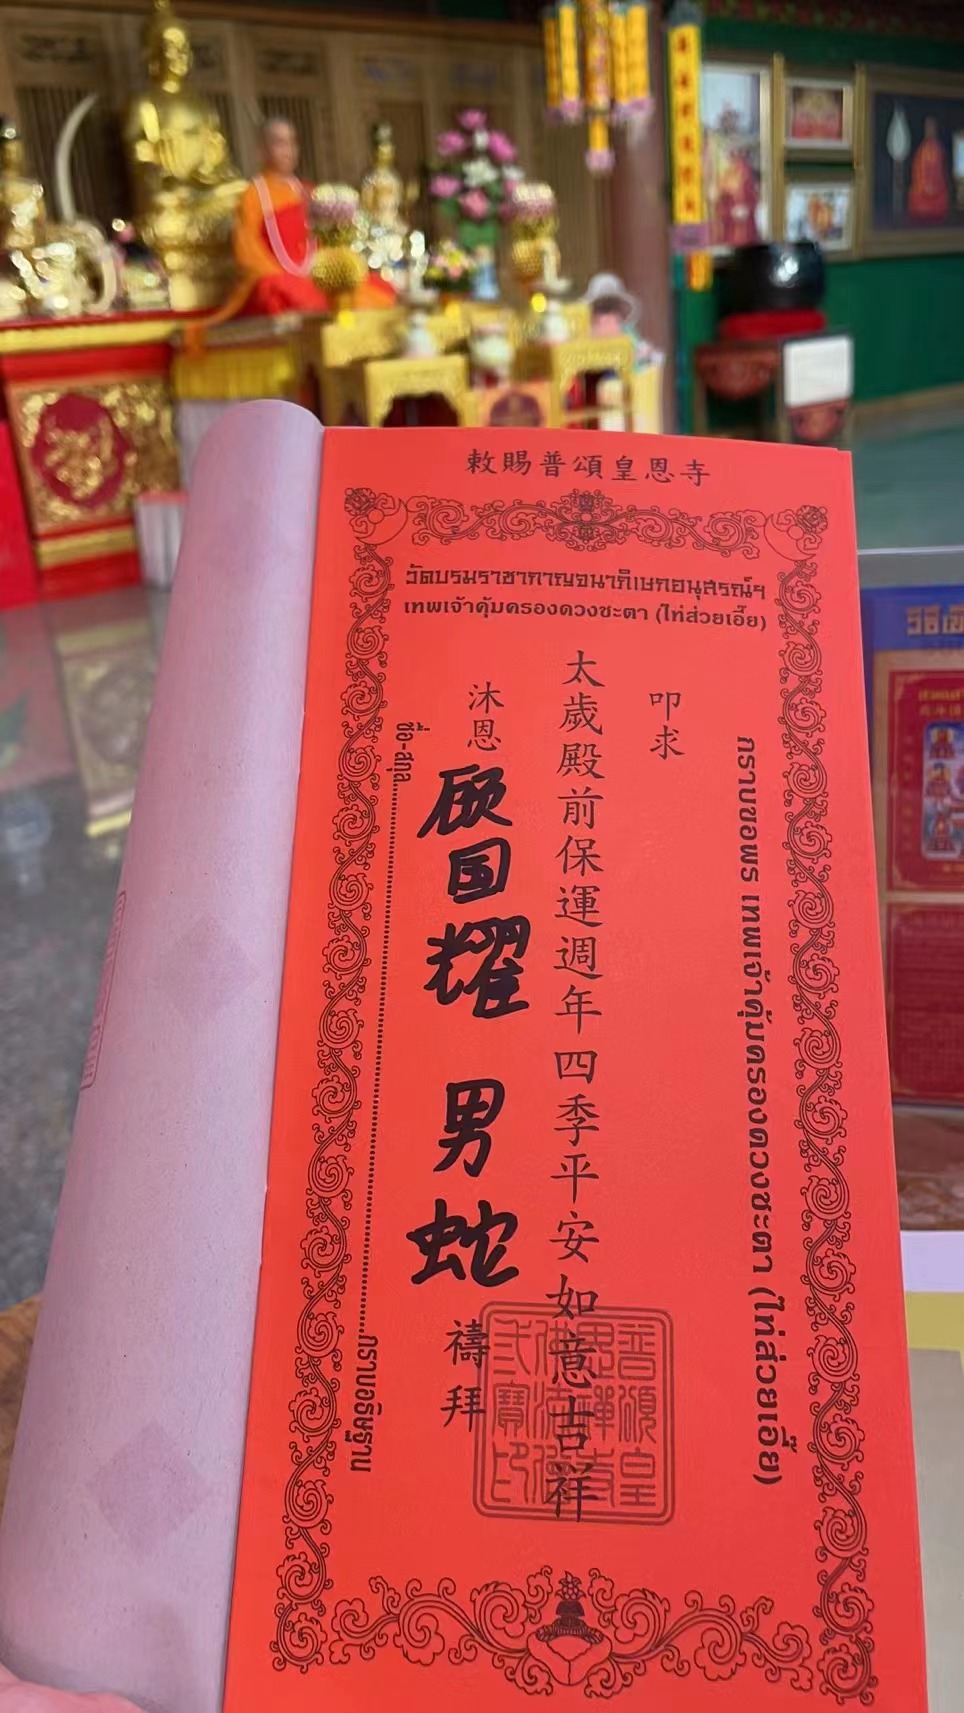 敕賜普頌皇恩寺
วัดบรมราชากาญจนาภิเษกอนุสรณ์ฯ
เทพเจ้าคุ้มครองดวงชะตา (ไท่ส่วยเอี๊ย)
กราบขอพร เทพเจ้าคุ้มครองดวงชะตา (ไท่ส่วยเอี๊ย)
叩求
太歲殿前保運週年四季平安如意吉祥
沐恩 顾国耀 男 蛇 禱拜
ชื่อ-สกุล
กราบอธิษฐาน